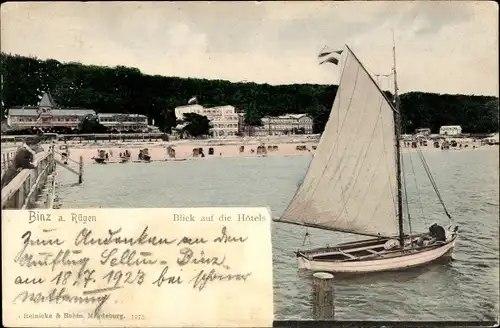 Binz a. Rügen
Blick auf die Hôtels
Zum Andenken an den
Ausflug Sellin - Binz
am 18.7.1923 bei schöner
Witterung
Reinicke & Rubin, Magdeburg. 1172